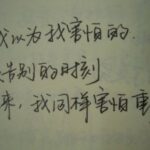 我以为我害怕的.
告别的时刻
来，我同样害怕重